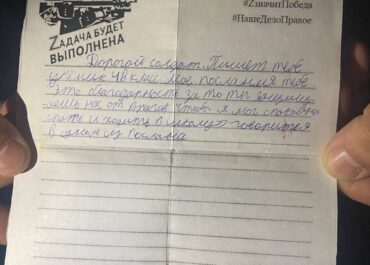 ZАДАЧА БУДЕТ
ВЫПОЛНЕНА
#ZзначитПобеда
#НашеДелоПравое
Дорогой солдат. Пишет тебе
ученик 4В клас. Мое послания тебе
это благодарность за то ты защища
ешь нас от врагов. чтобы я мог спокойно
спать и ходить в школу - говорится
в одном из послана